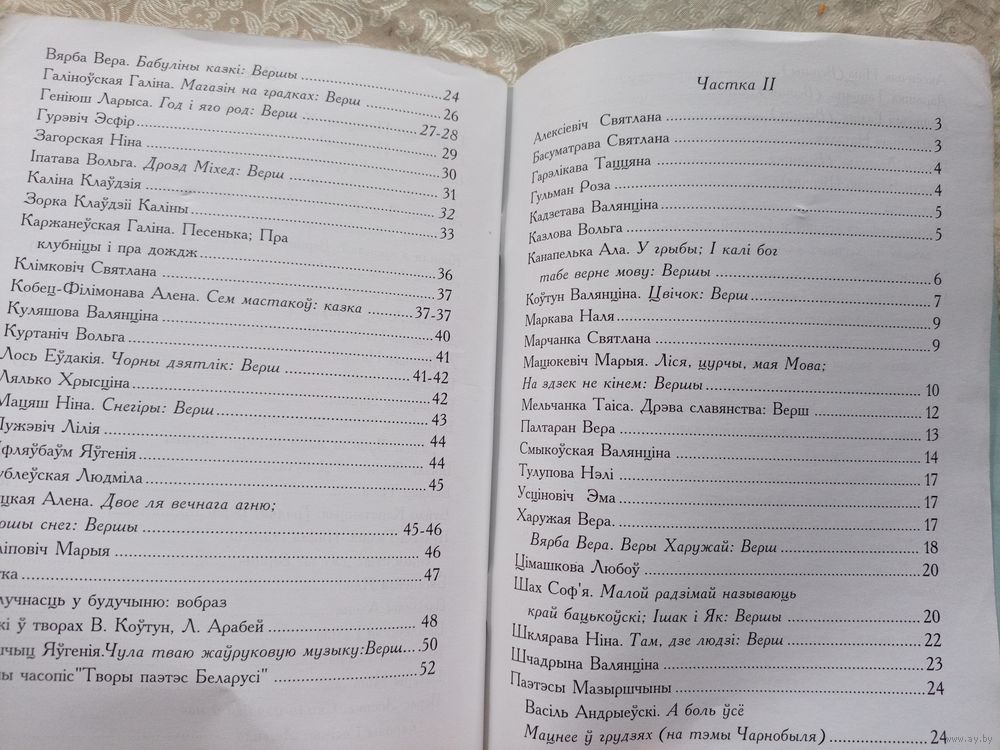 Вярба Вера. Бабуліны казкі: Вершы ........ 24
Галіноўская Галіна. Магазін на градках: Верш ........ 26
Геніюш Ларыса. Год і яго род: Верш ........ 27-28
Гурэвіч Эсфір ........ 29
Загорская Ніна ........ 30
Іпатава Вольга. Дрозд Міхед: Верш ........ 31
Каліна Клаўдзія ........ 32
Зорка Клаўдзіі Каліны ........ 33
Каржанеўская Галіна. Песенька; Пра
клубніцы і пра дождж ........ 36
Клімковіч Святлана ........ 37
Кобец-Філімонава Алена. Сем мастакоў: казка ........ 37-37
Куляшова Валянціна ........ 40
Куртаніч Вольга ........ 41
Лось Еўдакія. Чорны дзятлік: Верш ........ 41-42
Лялько Хрысціна ........ 42
Мацяш Ніна. Снегіры: Верш ........ 43
Лілія ........ 44
Яўгенія ........ 44
Людміла ........ 45
Алена. Двое ля вечнага агню;
снег: Вершы ........ 45-46
Марыя ........ 46
........ 47
у будучыню: вобраз
ў творах В. Коўтун, Л. Арабей ........ 48
Яўгенія. Чула тваю жаўруковую музыку: Верш ... 50
часопіс "Творы паэтэс Беларусі" ........ 52
Частка II
Алексіевіч Святлана ........ 3
Басуматрава Святлана ........ 3
Гарэлікава Таццяна ........ 4
Гульман Роза ........ 4
Кадзетава Валянціна ........ 5
Казлова Вольга ........ 5
Канапелька Ала. У грыбы; І калі бог
табе верне мову: Вершы ........ 6
Коўтун Валянціна. Цвічок: Верш ........ 7
Маркава Наля ........ 9
Марчанка Святлана ........ 9
Мацюкевіч Марыя. Ліся, цурчы, мая Мова;
На здзек не кінем: Вершы ........ 10
Мельчанка Таіса. Дрэва славянства: Верш ........ 12
Палтаран Вера ........ 13
Смыкоўская Валянціна ........ 14
Тулупова Нэлі ........ 17
Усціновіч Эма ........ 17
Харужая Вера. ........ 17
Вярба Вера. Веры Харужай: Верш ........ 18
Цімашкова Любоў ........ 20
Шах Соф'я. Малой радзімай называюць
край бацькоўскі; Ішак і Як: Вершы ........ 20
Шклярава Ніна. Там, дзе людзі: Верш ........ 22
Шчадрына Валянціна ........ 23
Паэтэсы Мазыршчыны ........ 24
Васіль Андрыеўскі. А боль ўсё
Мацнее ў грудзях (на тэмы Чарнобыля) ........ 24
www.ay.by